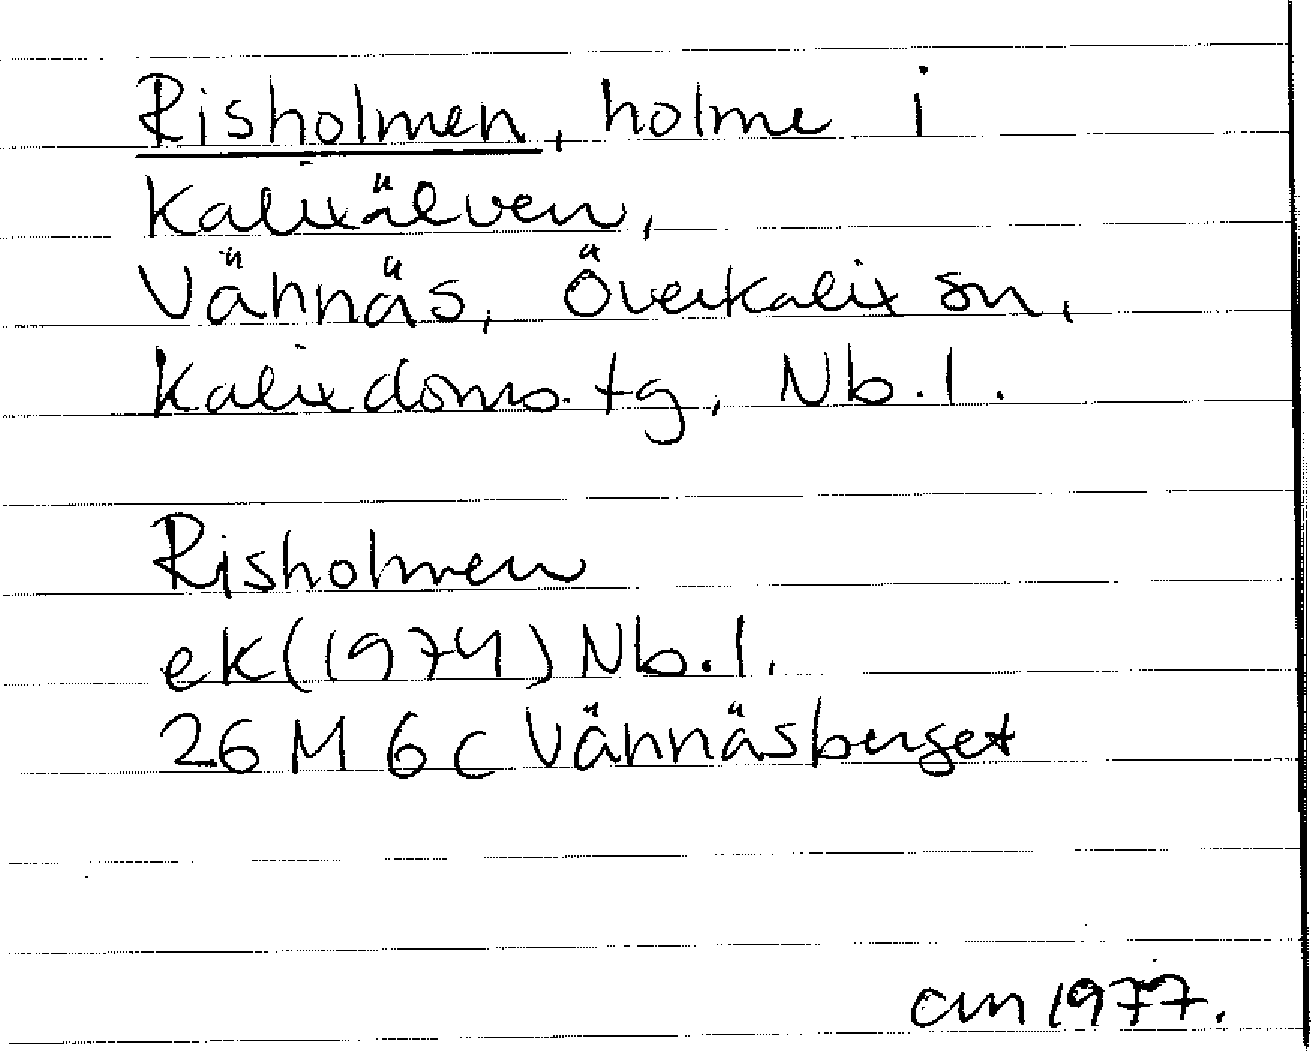 Risholmen, holme i
Kalixälven,
Vännäs, Överkalix sn,
Kalix doms. tg, Nb. l.
Risholmen
ek (1974) Nb. l.
26 M 6 c Vännäsberget
am 1977.